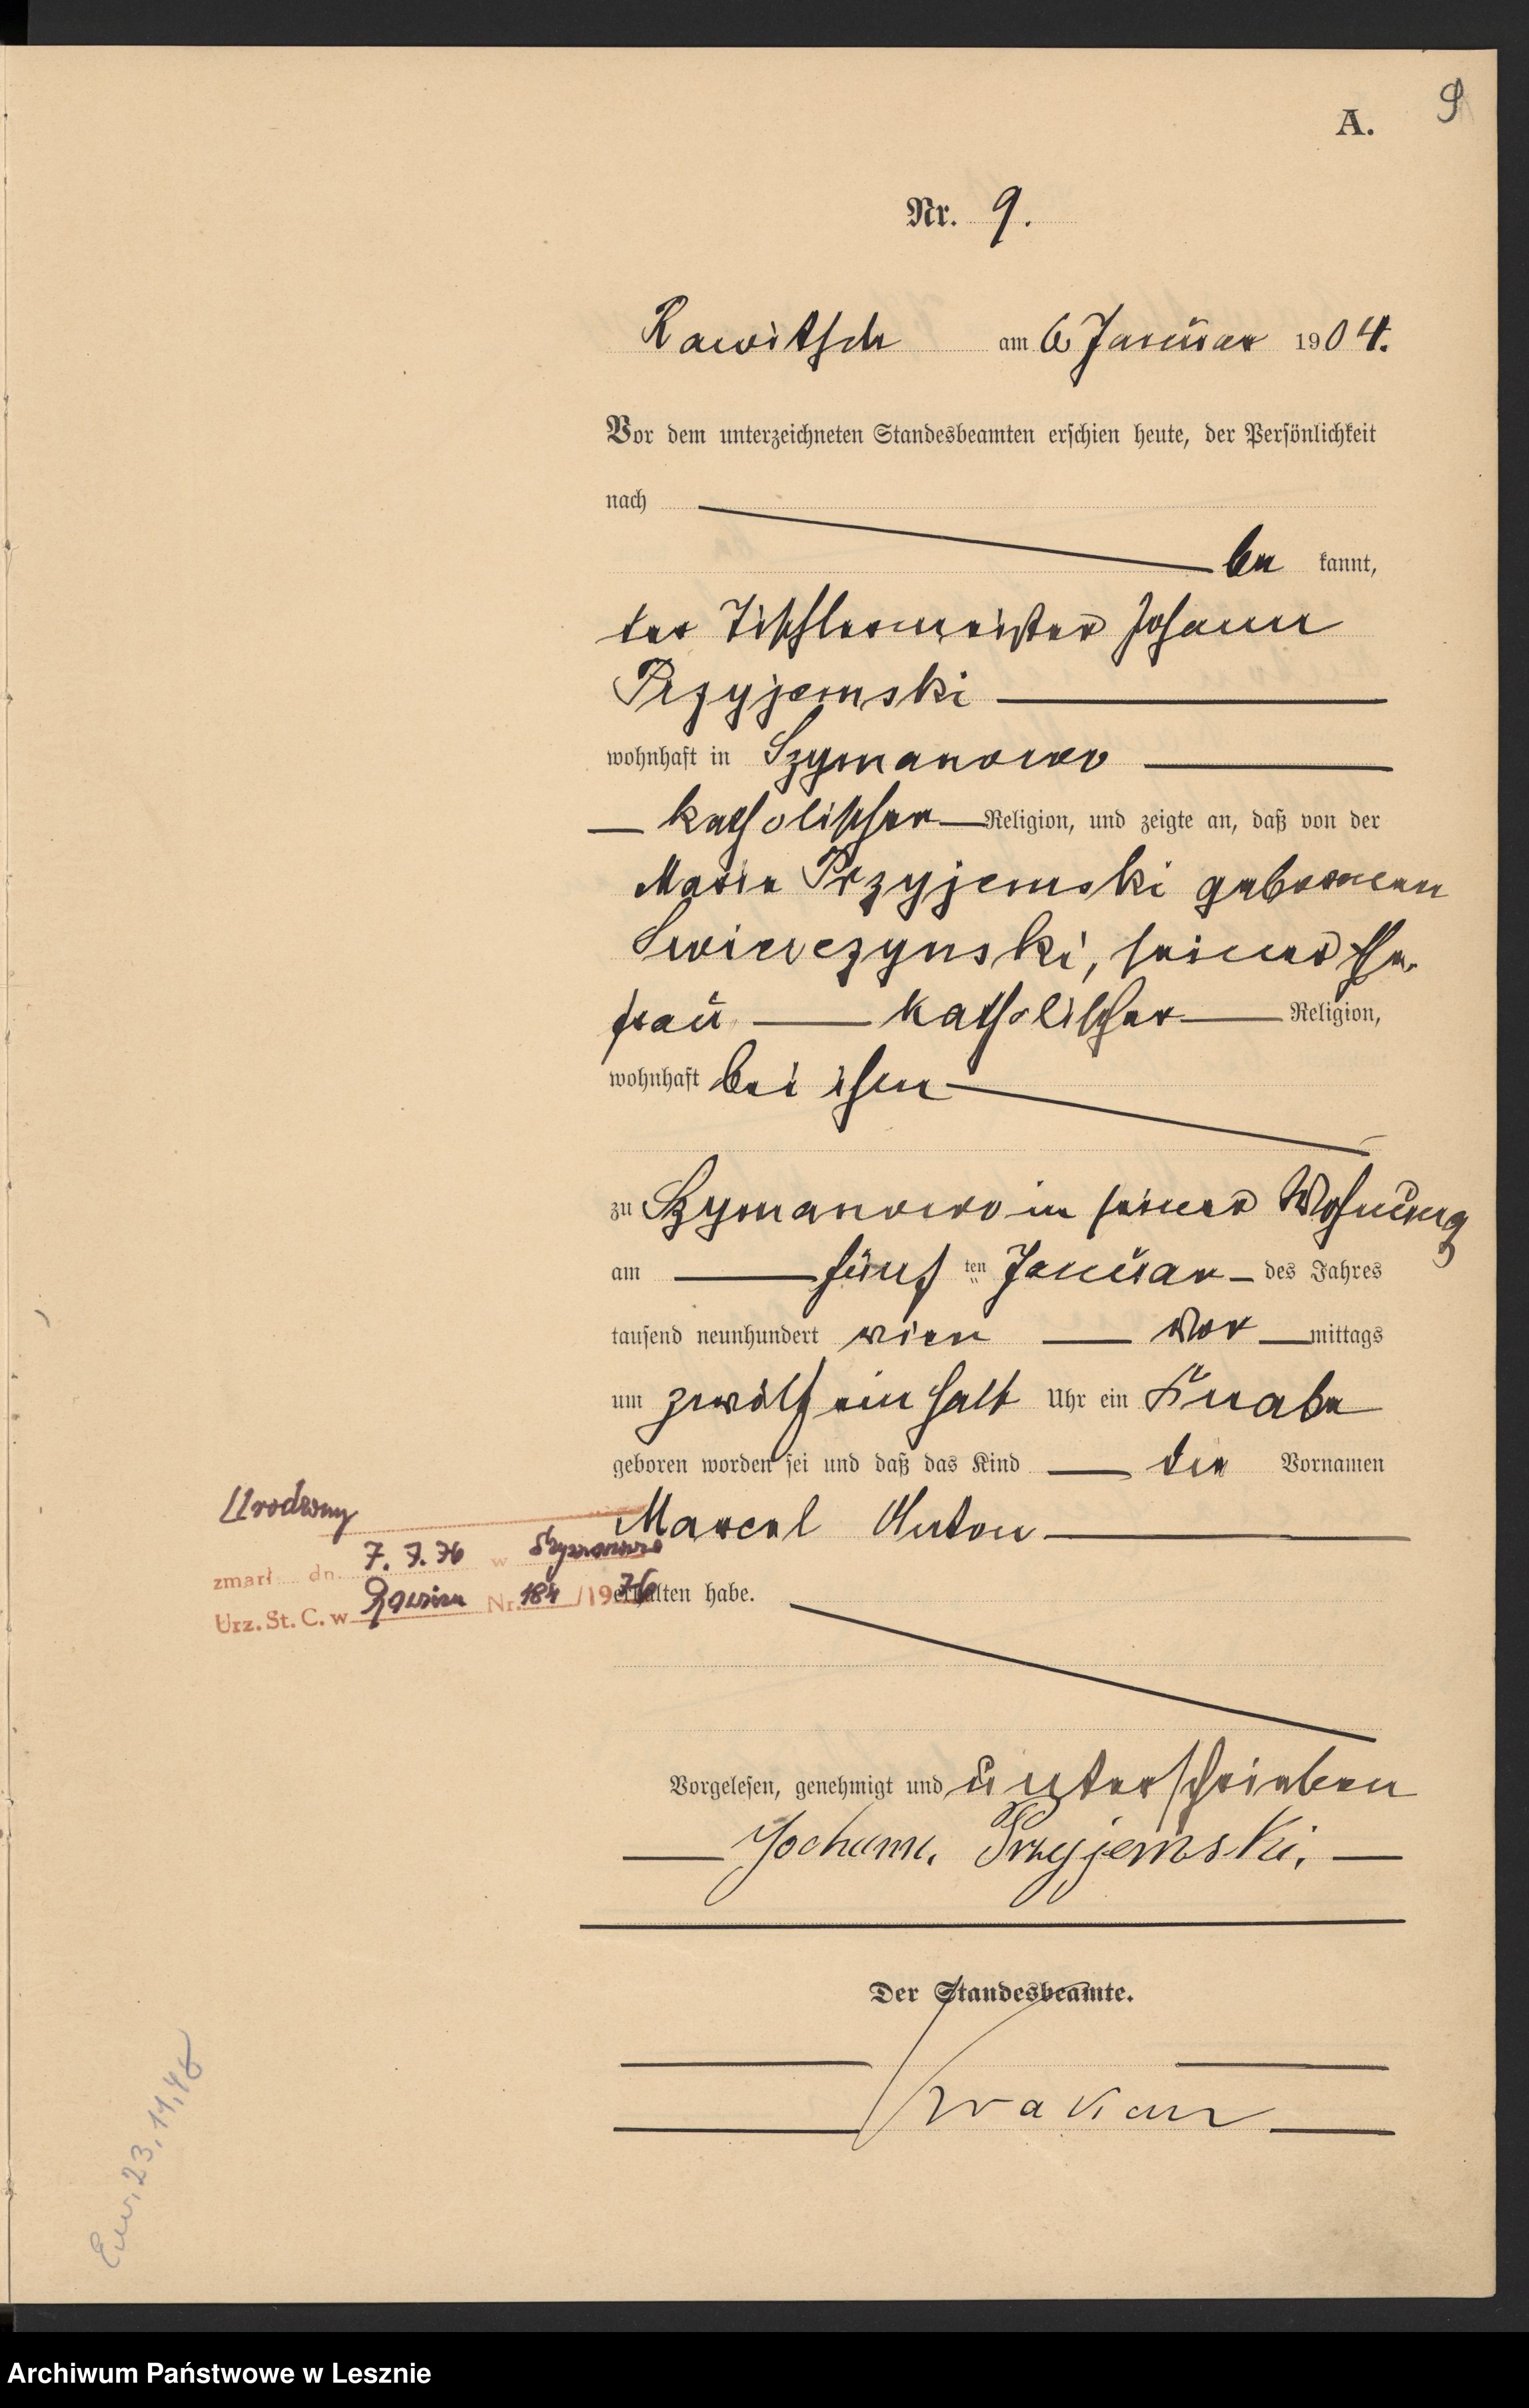 9
A.
Nr. 9.
Rawitsch am 6 Januar 1904.
Vor dem unterzeichneten Standesbeamten erschien heute, der Persönlichkeit
nach
be kannt,
der Tischlermeister Johann
Przyjemski
wohnhaft in Szymanowo
katholischer Religion, und zeigte an, daß von der
Marie Przyjemski geborenen
Swierczynski, seiner Ehe-
frau katholischer Religion,
wohnhaft bei ihm
zu Szymanowo in seiner Wohnung
am fünf ten Januar des Jahres
tausend neunhundert vier Vor mittags
um zwölf ein halb Uhr ein Knabe
geboren worden sei und daß das Kind die Vornamen
Marcel Anton
erhalten habe.
Urodzony
zmarł dn. 7.7.76 w Szymanowo
Urz. St. C. w Rawicz Nr. 184/1976
Vorgelesen, genehmigt und unterschrieben
Johann. Przyjemski.
Der Standesbeamte.
23.11.48
Archiwum Państwowe w Lesznie